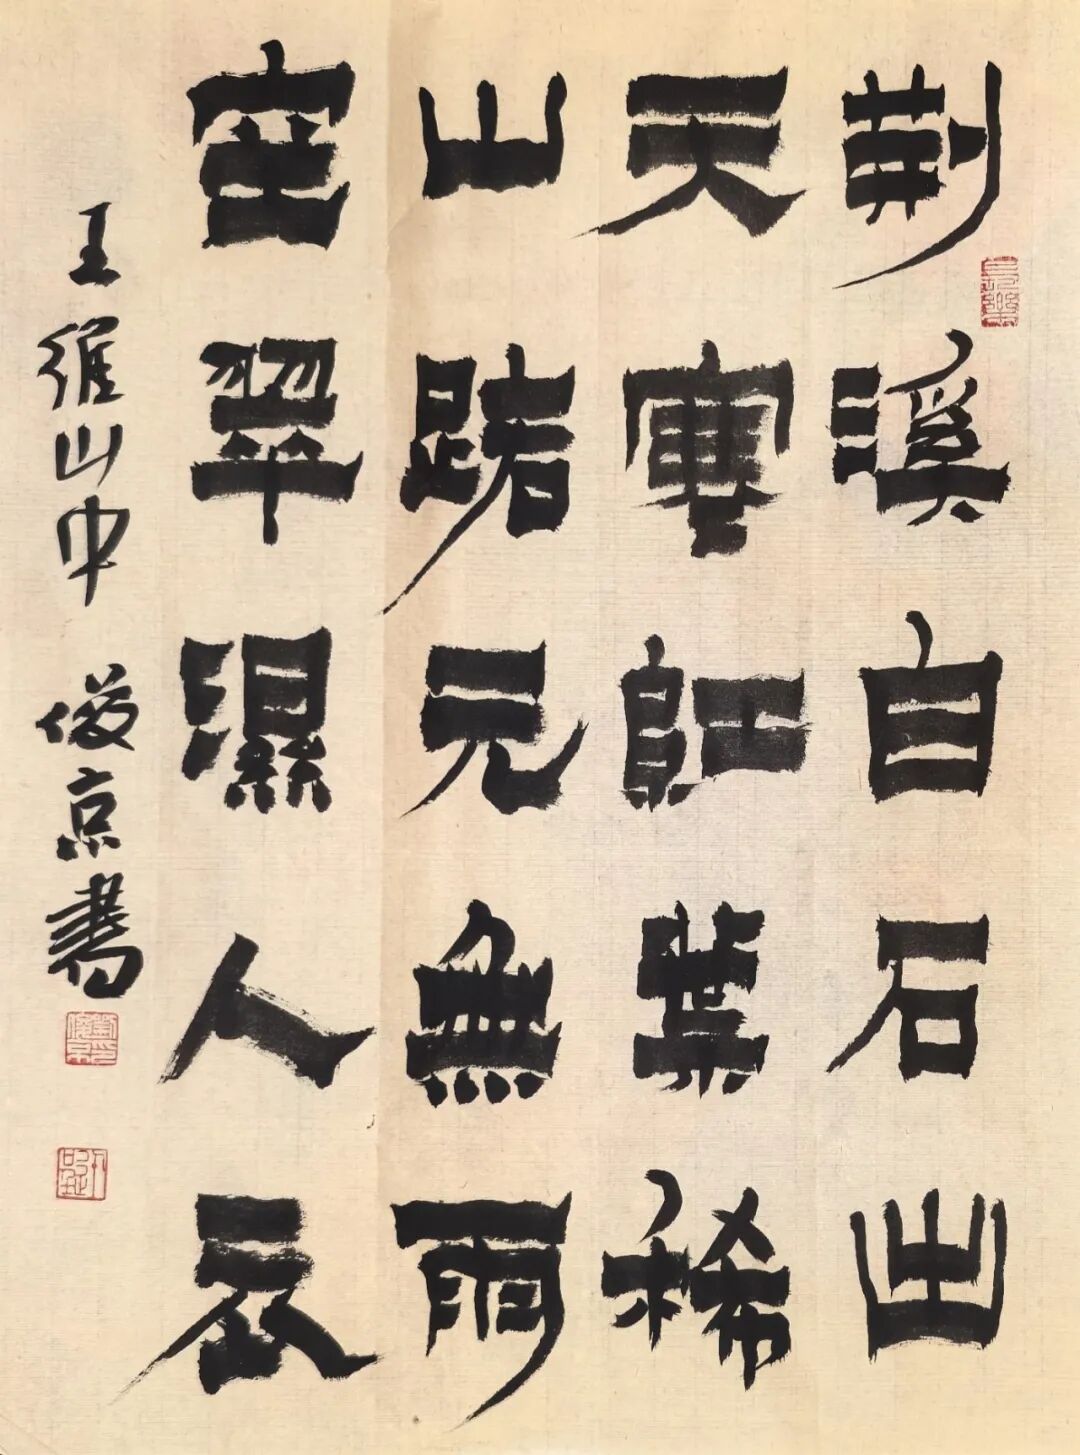 荆溪白石出
天寒紅葉稀
山路元無雨
空翠濕人衣
王維山中 俊京書